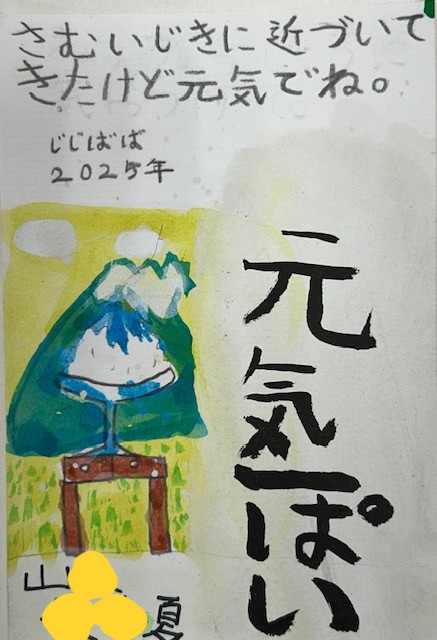 さむいじきに近づいて
きたけど元気でね。
じじばば
2025年
元気一ぱい
山
夏